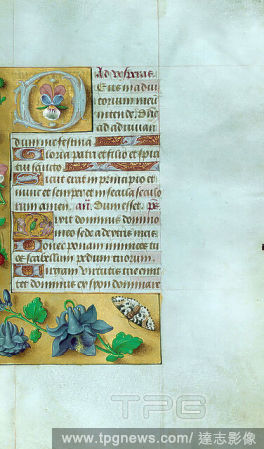 Ad vesperas.
Deus in adiu
torium meū
intende. Dñe
ad adiuuan
dum me festina
Gloria patri et filio et spiri
tui sancto
Sicut erat in principio et
nunc et semper et in secula seculo
rum amen. añ. Dum esset. ps
Dixit dominus domino
meo sede a dextris meis
Donec ponam inimicos tu
os scabellum pedum tuorum.
Virgam virtutis tue emit
tet dominus ex syon dominare
TPG
www.tpgnews.com/ 達志影像